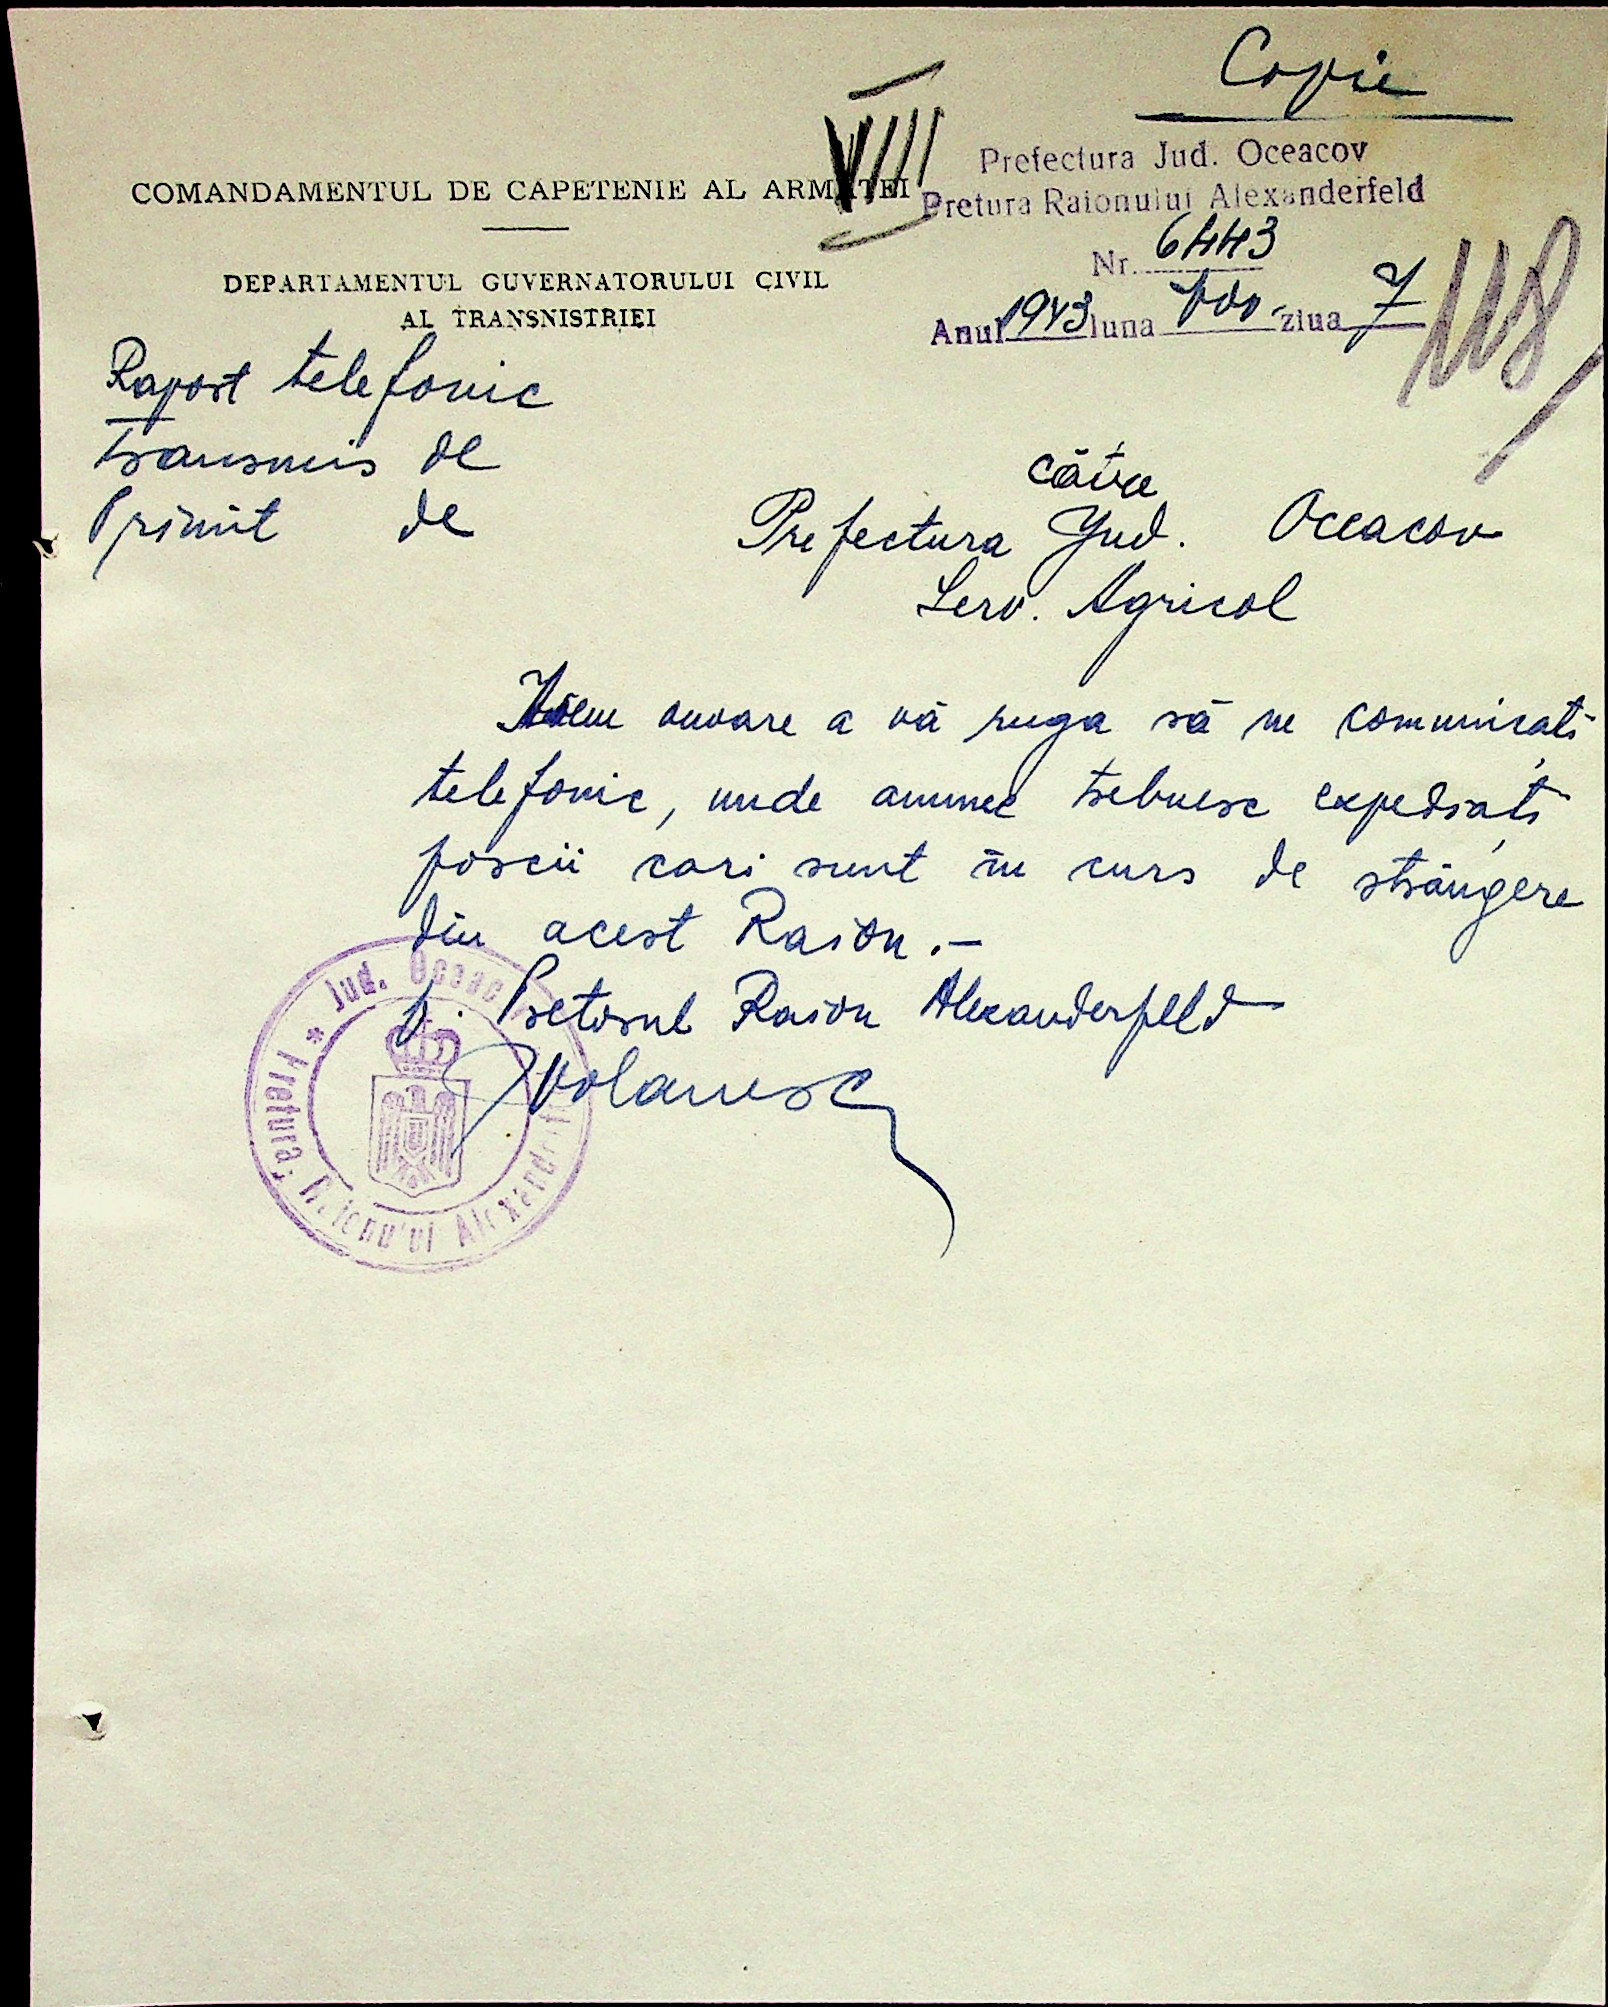 Copie
VIII
COMANDAMENTUL DE CAPETENIE AL ARMATEI
Prefectura Jud. Oceacov
Pretura Raionului Alexanderfeld
Nr. 6443
Anul 1943 luna ziua 7
118
DEPARTAMENTUL GUVERNATORULUI CIVIL
AL TRANSNISTRIEI
Raport telefonic
transmis de
Primit de
către
Prefectura Jud. Oceacov
Serv. Agricol
onoare a vă ruga să ne comunicați
telefonic, unde anume trebuesc expediați
porcii cari sunt în curs de strângere
din acest Raion.-
p. Pretorul Raion Alexanderfeld
Jud. Oceac
* Pretura Raionului Alexande